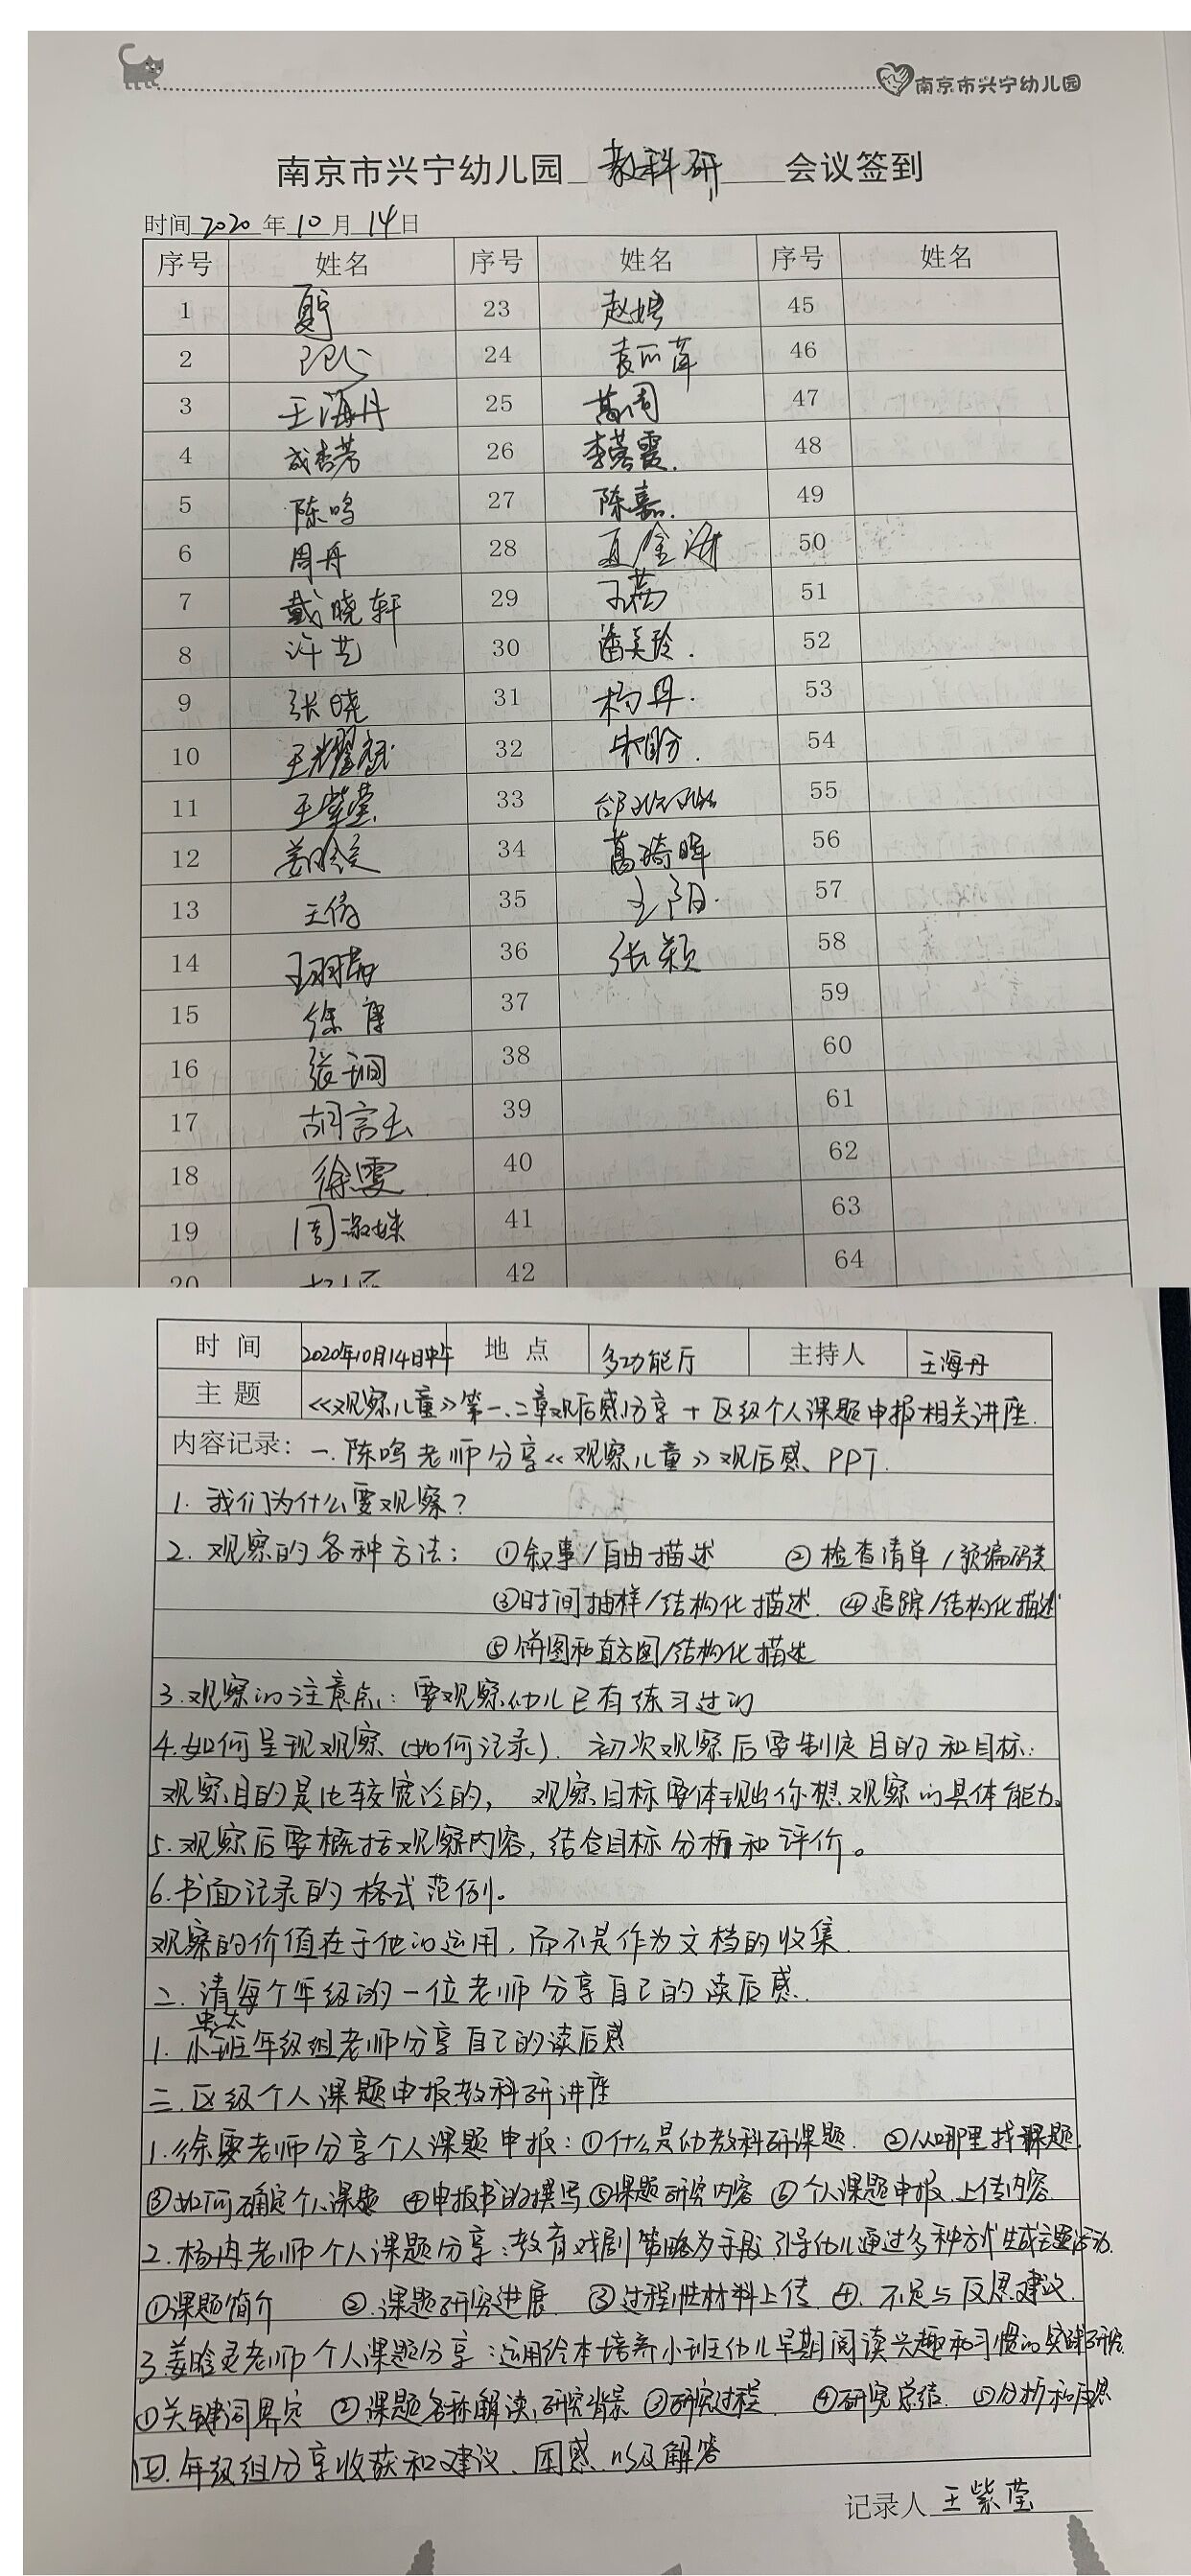 南京市兴宁幼儿园
南京市兴宁幼儿园 教科研 会议签到
时间 2020 年 10 月 14 日
序号 姓名 序号 姓名 序号 姓名
1 23 赵娉 45
2 24 袁丽萍 46
3 王海丹 25 葛倩 47
4 成杏芳 26 李蓉霞. 48
5 陈鸣 27 陈嘉. 49
6 周丹 28 夏金海 50
7 戴晓轩 29 王茜 51
8 许艺 30 潘美玲. 52
9 张晓 31 杨冉. 53
10 王耀斌 32 54
11 王紫莹 33 55
12 姜晗 34 葛琦晖 56
13 王倩 35 王阳. 57
14 王羽 36 张颖 58
15 徐 37 59
16 张珊 38 60
17 胡言玉 39 61
18 徐雯 40 62
19 周淑姝 41 63
20 42 64
时间 2020年10月14日中午 地点 多功能厅 主持人 王海丹
主题 《观察儿童》第一、二章观后感分享+区级个人课题申报相关讲座.
内容记录: 一.陈鸣老师分享《观察儿童》观后感、PPT.
1. 我们为什么要观察?
2. 观察的各种方法: ①叙事/自由描述 ②检查清单/预编码类
③时间抽样/结构化描述. ④追踪/结构化描述
⑤饼图和直方图/结构化描述
3.观察的注意点:要观察幼儿已有练习过的
4.如何呈现观察(如何记录). 初次观察后要制定目的和目标:
观察目的是比较宽泛的, 观察目标要体现出你想观察的具体能力。
5.观察后要概括观察内容,结合目标分析和评价。
6.书面记录的格式范例。
观察的价值在于他的运用,而不是作为文档的收集.
二.请每个年级的一位老师分享自己的读后感.
中、大
1. 小班年级组老师分享自己的读后感
三.区级个人课题申报教科研讲座
1.徐雯老师分享个人课题申报:①什么是幼教科研课题. ②从哪里找课题.
③如何确定个人课题 ④申报书的撰写 ⑤课题研究内容 ⑥个人课题申报.上传内容.
2.杨冉老师个人课题分享:教育戏剧策略为手段.引导幼儿通过多种方式生成主题活动.
①课题简介 ②.课题研究进展. ③过程性材料上传. ④.不足与反思.建议.
3.姜晗灵老师个人课题分享:运用绘本培养小班幼儿早期阅读兴趣和习惯的实践研究.
①关键词界定 ②课题名称解读、研究背景 ③研究过程 ④研究总结. ⑤分析和反思
四.年级组分享收获和建议、困惑.以及解答
记录人 王紫莹